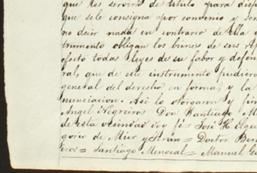 que les servira de título para dispo
que se le consigna por convenio y con
no decir nada en contrario de ella y
trumento obligan los bienes de sus
efecto todas leyes de su favor y defen
ral, que de este instrumento pudieran
general del derecho en forma, y la
nunciacion. Así lo otorgaron y fir
Angel Negreiros Don Santiago M
de esta vecindad doy fé José H. Elgue
gorio de Mier y Terán Doctor Ber
Santiago Menocal = Manuel Go